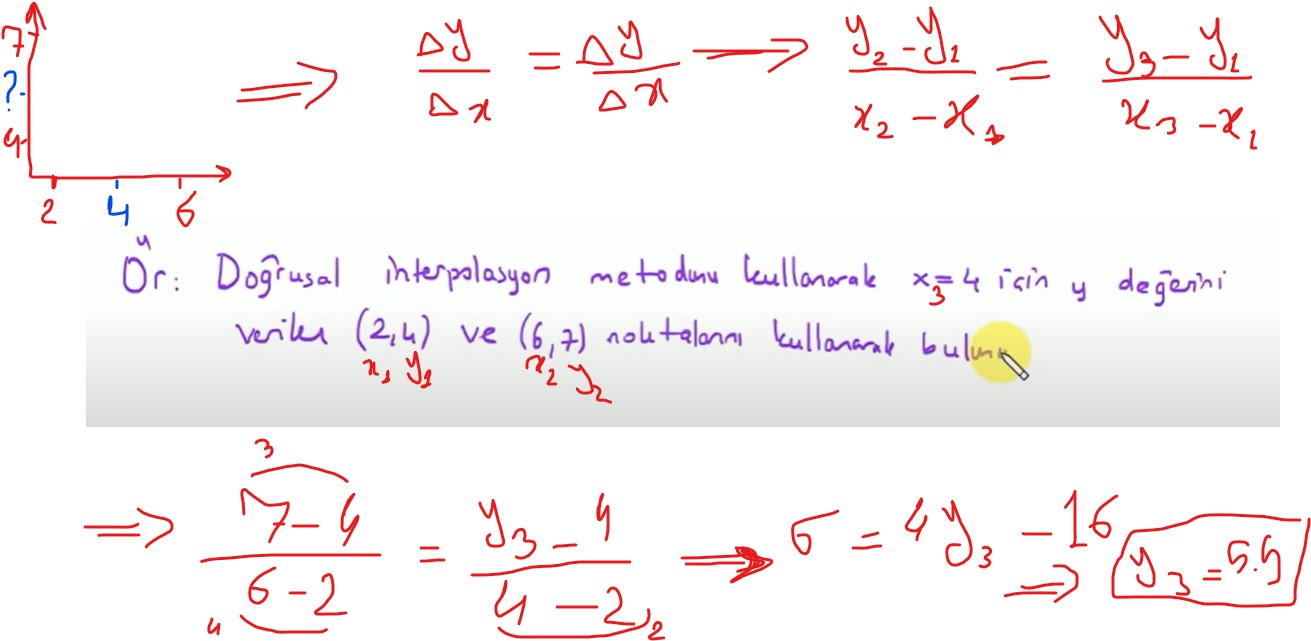 7
?
4
2 4 6
⇒ Δy/Δx = Δy/Δx → (y₂ - y₁)/(x₂ - x₁) = (y₃ - y₁)/(x₃ - x₁)
Ör: Doğrusal interpolasyon metodunu kullanarak x=4 için y değerini
3
verilen (2,4) ve (6,7) noktalarını kullanarak
x₁ y₁ x₂ y₂
3
⇒ (7-4)/(6-2) = (y₃ - 4)/(4-2) → 6 = 4y₃ - 16 ⇒ y₃ = 5.5
4 2